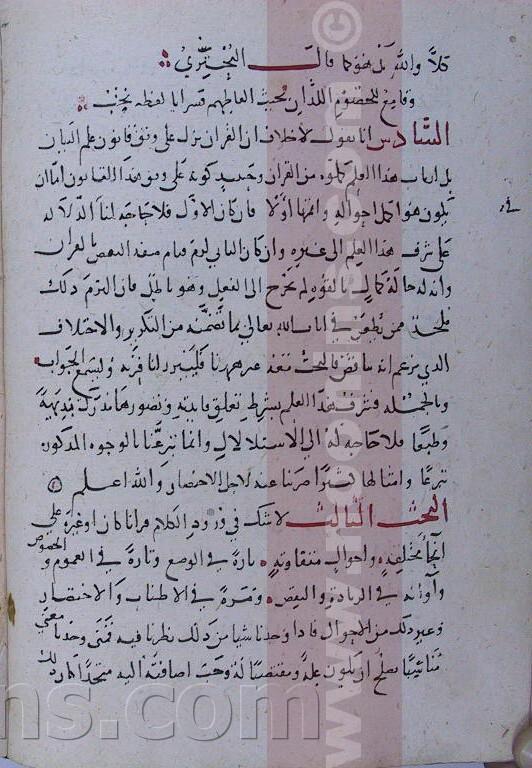 كلا والله بل هو كما قال البحتري
وقايع للخصوم اللذان بحيث العاظهم قسرا يا لفظه
السادس انا نقول لا خلاف ان القران نزل على وفق قانون علم البيان
بل ارباب هذا العلم من القران وحسد كونه على وفق هذا القانون اما ان
يكون هو اكمل احواله واتمها اولا فان كان الاول فلا حاجة لنا الدلالة
على شرف هذا العلم الى غيره وان كان الثاني لزم قيام صفه النقص بالقران
وانه له حالة كمال بالقوه لم تخرج الى الفعل وهو باطل فان التزم ذلك
ملحد ممن يطعن في ايات الله تعالى بما تضمنه من التكرير والاختلاف
الذي يزعم انه تناقض فالبحث معه غير همنا فليبرد لنا وليسمع الجواب
وبالجملة فشرف هذا العلم بشرط تعلق فايدته وتصورها مدرك بديهة
وطبعا فلا حاجه له الى الاستدلال وانما تبرعنا بالوجوه المذكورة
تبرعا وامثالها كثيرا صرنا عنه لاجل الاختصار والله اعلم
البحث الثالث لا شك في ورود الكلام قرانا كان او غيره على
انحاء مختلفه واحوال متفاوته تارة في الوضع وتارة في العموم والخصوص
وآونه في الزيادة والنقص ومرة في الاطناب والاختصار
وغير ذلك من الاحوال فاذا وجدنا شيا من ذلك نظرنا فيه فمتى وجدنا معنى
مناسبا يصلح ان يكون علة ومقتضيا له وجب اضافته اليه متحدا كان ذلك
www.rootiins.com
ns.com